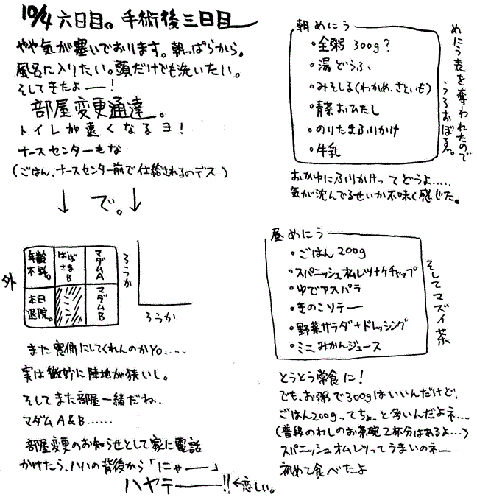 10/4 六日目。手術後三日目
やや気が塞いでおります。朝っぱらから。
風呂に入りたい。頭だけでも洗いたい。
そしてきたよー!
部屋変更通達。
トイレが遠くなるヨ!
ナースセンターもな
(ごはん、ナースセンター前で仕分されるのデス)
↓ で。 ↓
外
年齢不詳。
ばばさまB
マダムA
本日退院。
ココ
マダムB
ろうか
ろうか
また窓側にしてくれんのかYo……
実は微妙に陣地が狭いし。
そしてまた部屋一緒だね。
マダムA&B……
部屋変のお知らせとして家に電話
かけたら、ハハの背後から「にゃーー」
ハヤテーー!!←恋しい。
朝めにう
・全粥 300g?
・湯どうふ
・みそしる(わかめ、さといも)
・青菜おひたし
・のりたまふりかけ
・牛乳
めにう表を奪われたのでうろおぼえ。
おかゆにふりかけってどうよ……
気が沈んでるせいか不味く感じた。
昼めにう
・ごはん 200g
・スパニッシュオムレツ+ケチャップ
・ゆでアスパラ
・きのこソテー
・野菜サラダ+ドレッシング
・ミニみかんジュース
そしてマズイ茶
とうとう常食に!
でも、お粥で300gはいいんだけど、
ごはん200gってちょっと多いんだよネ…
(普段のわしのお茶碗2杯分はあるよ…)
スパニッシュオムレツってうまいのネー
初めて食べたよ